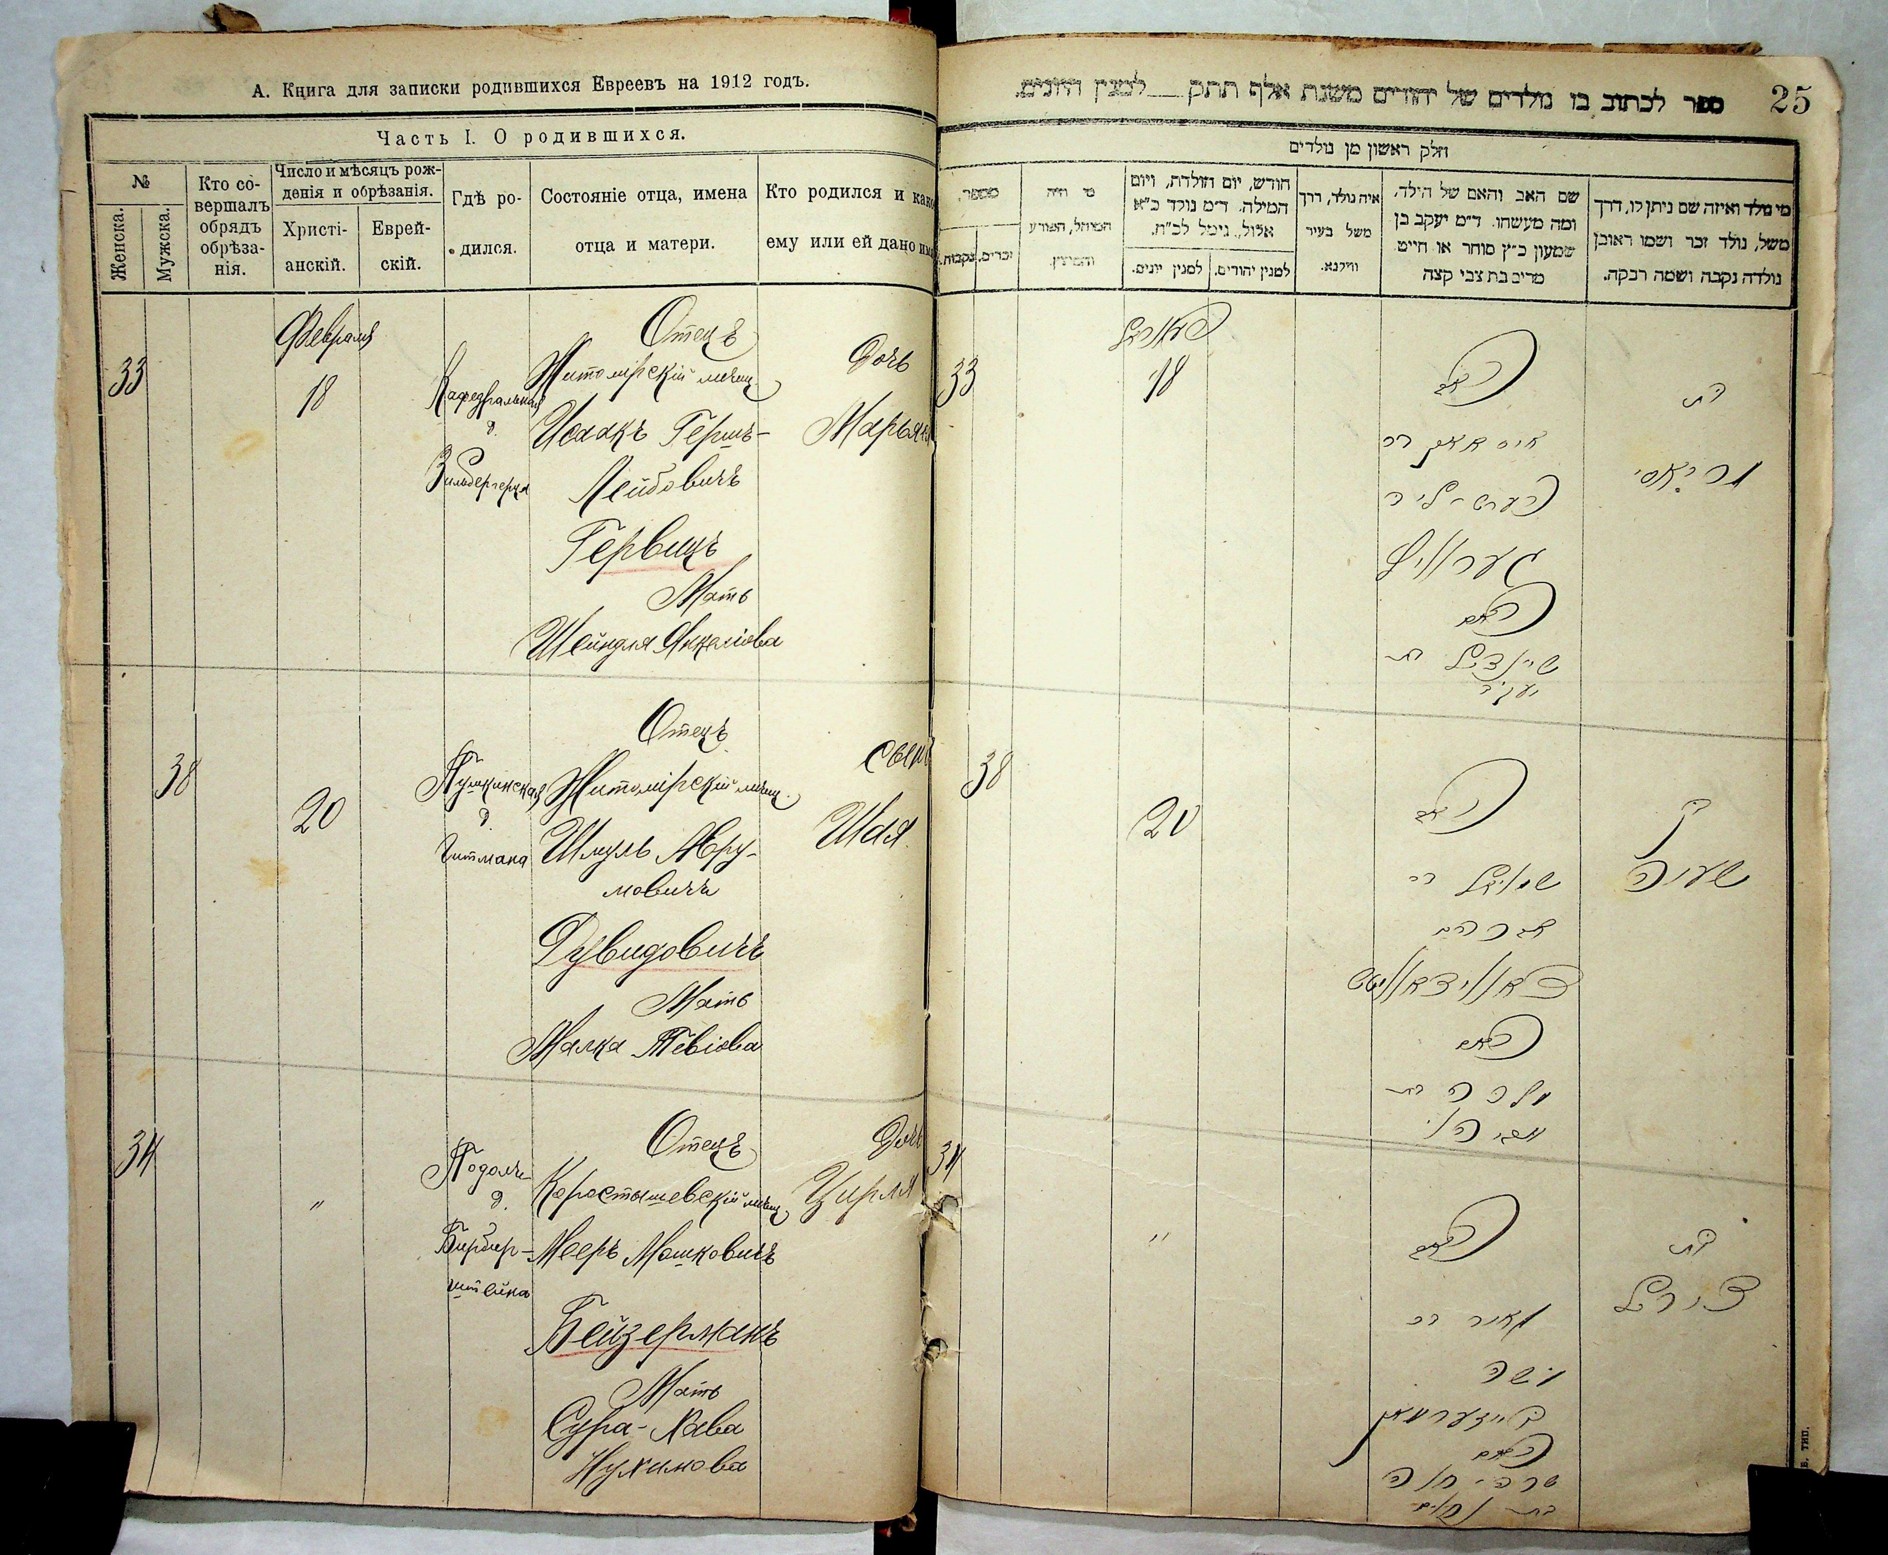 А. Книга для записки родившихся Евреевъ на 1912 годъ.
Часть I. О родившихся.
№
Женска.
Мужска.
Кто со-
вершалъ
обрядъ
обрѣза-
нія.
Число и мѣсяцъ рож-
денія и обрѣзанія.
Христі-
анскій.
Еврей-
скій.
Гдѣ ро-
дился.
Состояніе отца, имена
отца и матери.
Кто родился и како
ему или ей дано имя
Февраля
33
18
Кафедральная
д.
Зильбергерца
Отецъ
Житомірскій мѣщ.
Исаакъ Гершъ-
Лейбовичъ
Гервицъ
Мать
Шейндля Янкелiова
Дочь
Марьяся
38
20
Пушкинская
д.
Гитмана
Отецъ
Житомірскій мѣщ.
Шмуль Авру-
мовичъ
Дувидовичъ
Мать
Малка Тевiова
сынъ
Шая
34
"
д.
Бирбир-
штейна
Отецъ
Коростышевскій мѣщ.
Мееръ Мошковичъ
Бейзерманъ
Мать
Сура-Хава
Нухимова
Дочь
Цирля
25
ספר לכתוב בו נולדים של יהודים משנת אלף תתק___למנין היונים.
חלק ראשון מן נולדים
מספר,
זכרים,
נקבות.
מי היה
המוהל, הפורע
והמוצץ
חודש, יום הולדת, ויום
המילה. ד״מ נולד כ״א
אלול, גימל לכ״ח.
למנין יהודים,
למנין יונים.
איה נולד, דרך
משל בעיר
ווילנא.
שם האב והאם של הילד,
ומה מעשהו. ד״מ יעקב בן
שמעון כ״ץ סוחר או חייט
מרים בת צבי קצה
מי נולד ואיזה שם ניתן לו, דרך
משל, נולד זכר ושמו ראובן
נולדה נקבה ושמה רבקה.
פעבראל
33
18
האב
אייזאאק בר
הערש-ליב
גערוויץ
האם
שיינדיל בת
יעקב
בת
מריאסי
38
20
האב
שמואיל בר
אברהם
דאווידאוויטש
האם
מלכה בת
טביה
בן
שעיה
34
"
האב
מאיר בר
משה
בייזערמאן
האם
שרה-חוה
בת נחום
בת
צירל